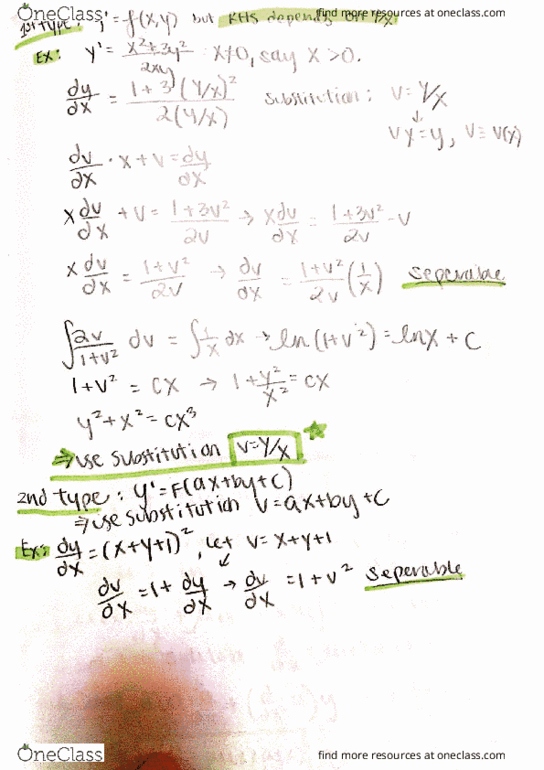 OneClass find more resources at oneclass.com
1st type: y'=f(x,y) but RHS depends on y/x
Ex: y' = (x²+3y²)/(2xy) x≠0, say x >0.
dy/dx = (1+3(y/x)²)/(2(y/x)) substitution: v=y/x
↓
vx=y, v≡v(x)
dv/dx • x+v = dy/dx
x dv/dx + v = (1+3v²)/(2v) → x dv/dx = (1+3v²)/(2v) -v
x dv/dx = (1+v²)/(2v) → dv/dx = (1+v²)/(2v) (1/x) seperable
∫ 2v/(1+v²) dv = ∫ 1/x dx → ln(1+v²) = lnx + C
1+v² = cx → 1+ y²/x² = cx
y²+x² = cx³
⇒ use substitution v=y/x
2nd type: y'=F(ax+by+c)
⇒ use substitution v=ax+by+c
Ex: dy/dx = (x+y+1)², let v=x+y+1
dv/dx = 1+ dy/dx → dv/dx = 1+v² seperable
OneClass find more resources at oneclass.com